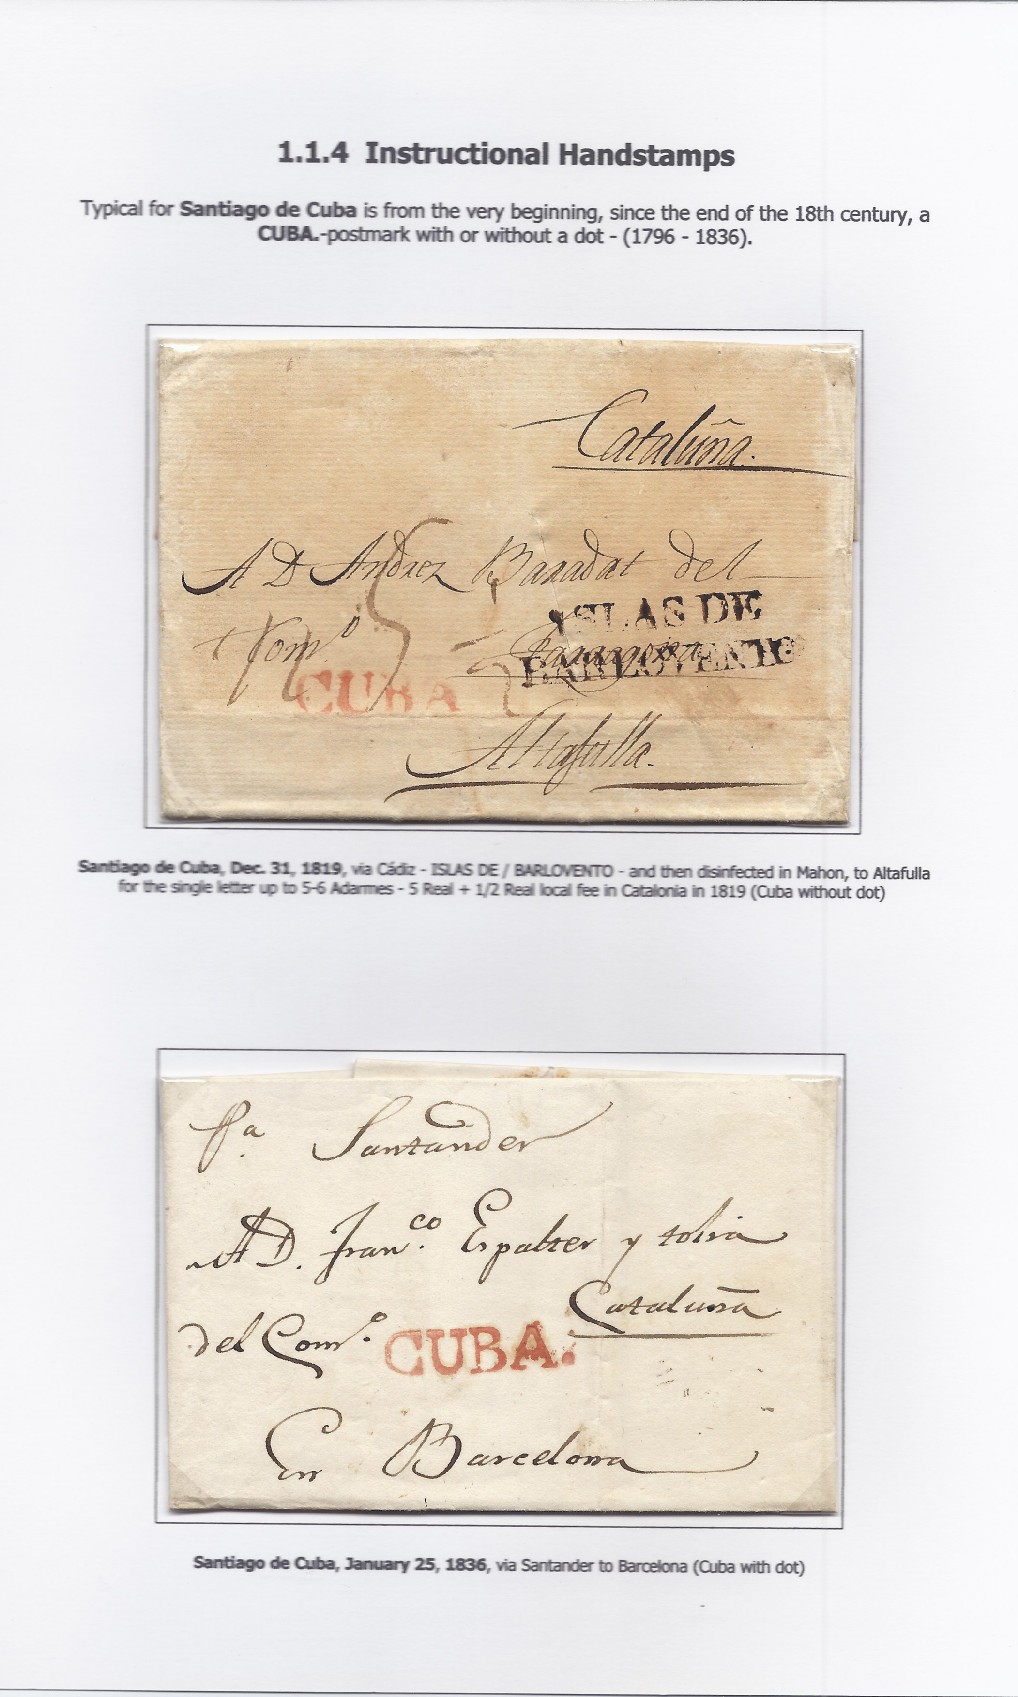 1.1.4 Instructional Handstamps
Typical for Santiago de Cuba is from the very beginning, since the end of the 18th century, a
CUBA.-postmark with or without a dot - (1796 - 1836).
Cataluña.
A D Andrez Baradat del
Comº
ISLAS DE
Tarragona
BARLOVENTO
CUBA
Altafulla.
Santiago de Cuba, Dec. 31, 1819, via Cádiz - ISLAS DE / BARLOVENTO - and then disinfected in Mahon, to Altafulla
for the single letter up to 5-6 Adarmes - 5 Real + 1/2 Real local fee in Catalonia in 1819 (Cuba without dot)
Pª Santander
A D. Franco. Espalter y
Cataluña
del Comº.
CUBA.
En Barcelona
Santiago de Cuba, January 25, 1836, via Santander to Barcelona (Cuba with dot)